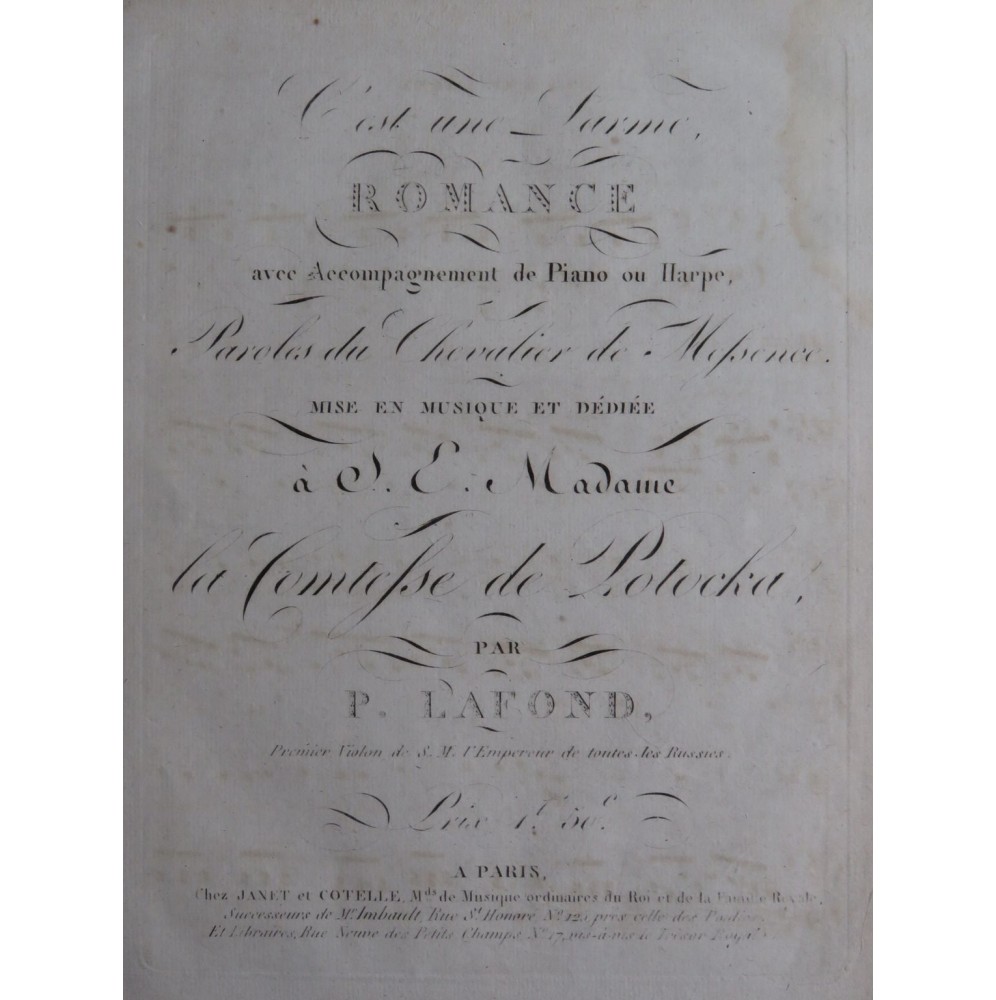 C'est une Larme,
ROMANCE
avec Accompagnement de Piano ou Harpe,
Paroles du Chevalier de Meſsence.
MISE EN MUSIQUE ET DÉDIÉE
à S. E. Madame
la Comteſse de Potocka,
PAR
P. LAFOND,
Premier Violon de S. M. l'Empereur de toutes les Russies.
Prix 1f 50c.
A PARIS,
Chez JANET et COTELLE, Mds de Musique ordinaires du Roi et de la Famille Royale,
Successeurs de Mr Imbault, Rue St Honoré No 125 près celle des
Et Libraires, Rue Neuve des Petits Champs, No 17, vis-à-vis le Trésor Royal.